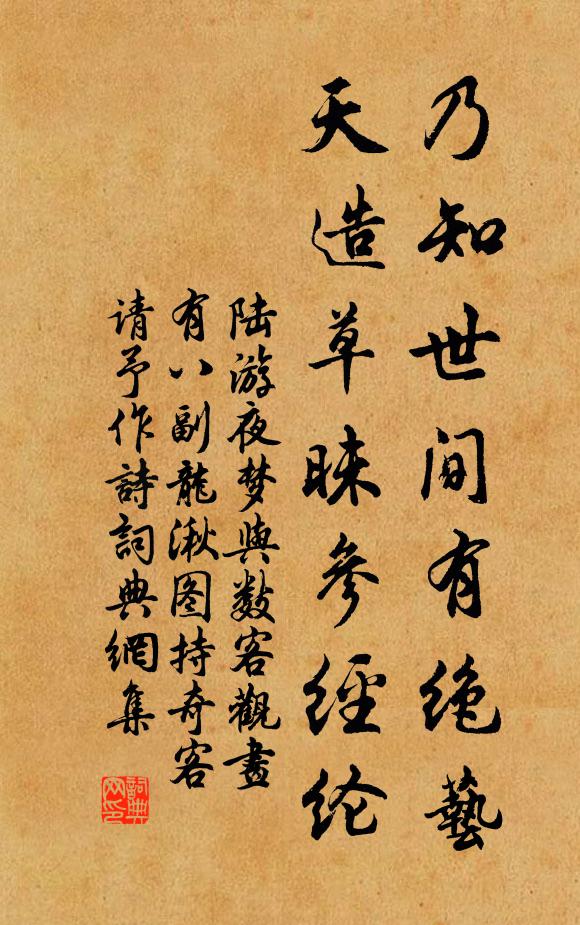 乃知世间有绝藝
天造草昧參經纶
陆游夜梦與数客觀畫
有八副龍湫图持奇客
请予作詩詞典網集
詞典网印